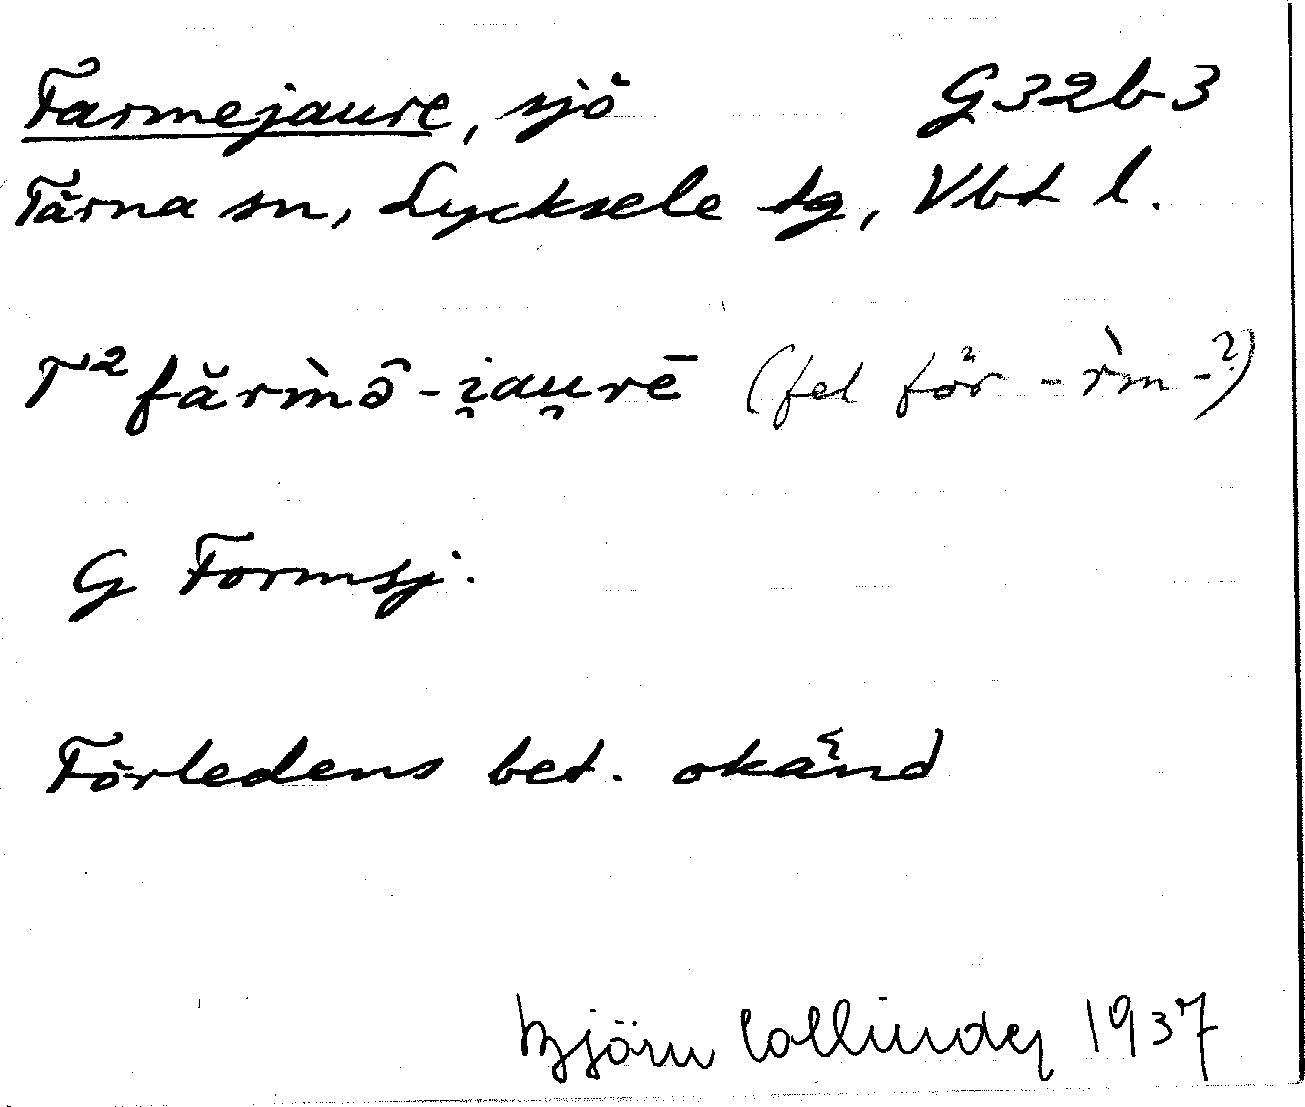 Farmejaure, sjö G32b3
Tärna sn, Lycksele tg, Vbt l.
T² fărm̀ō̂-i̯au̯rē (fel för -r̀m-?)
G Formsj.
Förledens bet. okänd
Björn Collinder 1937